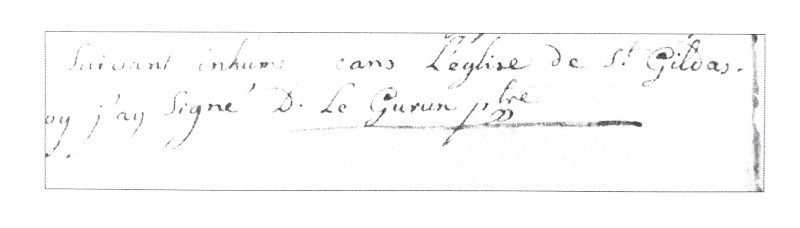 Suivant inhumé dans L'église de St Gildas.
oy j'ay Signé D. Le Gurun ptre